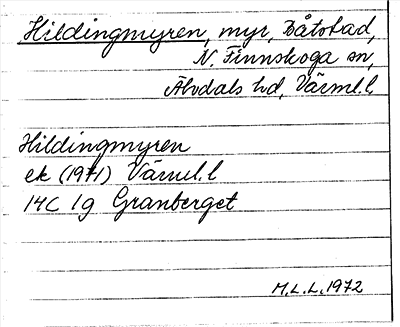 Hildingmyren, myr, Båtstad,
N. Finnskoga sn,
Älvdals hd, Värml. l
Hildingmyren
ek (1971) Värml. l
14C 1g Granberget
M.L.L. 1972